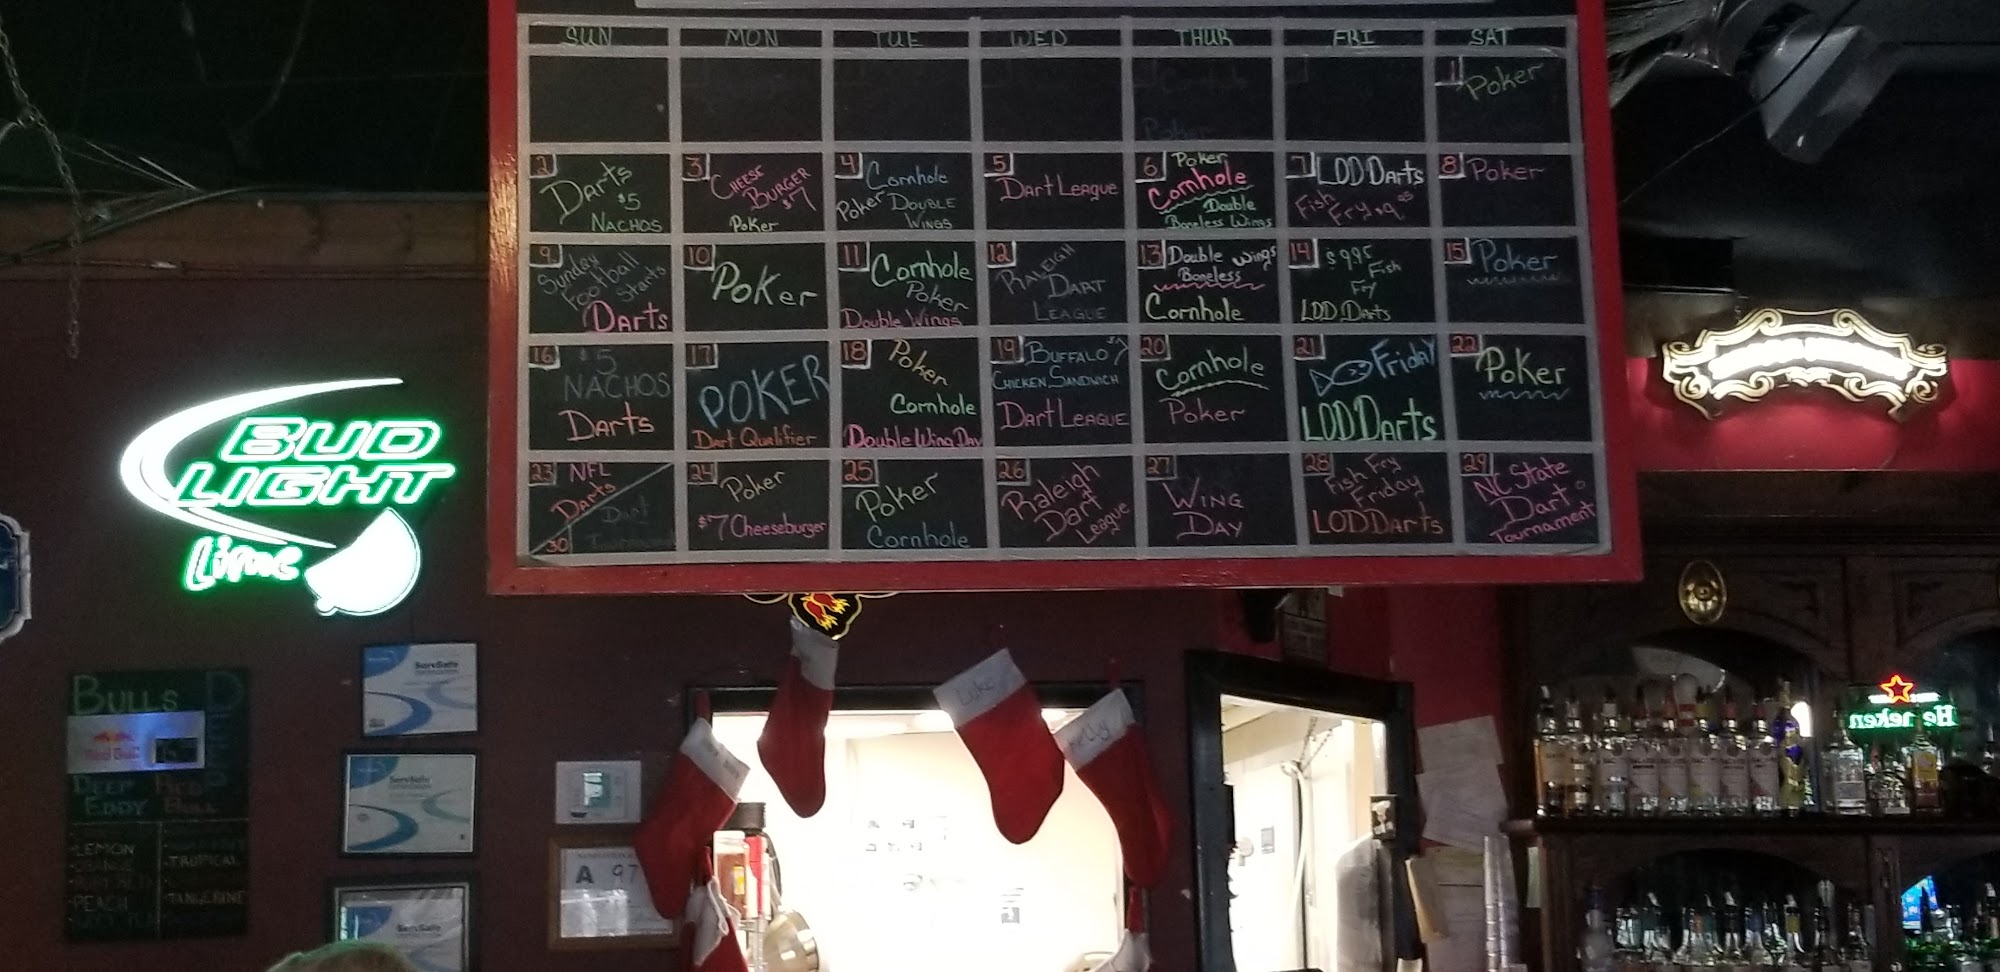 SUN MON TUE WED THUR FRI SAT
1 Poker
Poker
2 Darts
$5
NACHOS
3 CHEESE
BURGER
$7
Poker
4 Cornhole
Poker DOUBLE
WINGS
5
Dart League
6 Poker
Cornhole
Double
Boneless Wings
7 LOD Darts
Fish
Fry $9.95
8 Poker
9 Sunday
Football
Starts
DARTS
10
Poker
11 Cornhole
Poker
Double Wings
12 RALEIGH
DART
LEAGUE
13 Double wings
Boneless
Cornhole
14 $9.95
Fish
Fry
LOD Darts
15 Poker
16 $5
NACHOS
Darts
17
POKER
Dart Qualifier
18 Poker
Cornhole
Double Wing Day
19 BUFFALO $7
CHICKEN SANDWICH
DART LEAGUE
20
Cornhole
Poker
21 Friday
LOD Darts
22
Poker
23 NFL
Darts
Dart
30 Tournament
24 Poker
$7 Cheeseburger
25
Poker
Cornhole
26
Raleigh
Dart
League
27
WING
DAY
28 Fish Fry
Friday
LOD Darts
29
NC State
Dart
Tournament
BUD
LIGHT
Lime
ServSafe
ServSafe
ServSafe
BULLS
Red Bull
DEEP RED
EDDY BULL
LEMON
ORANGE
PEACH
TROPICAL
TANGERINE
A 97
Luke
Kelly
Heineken